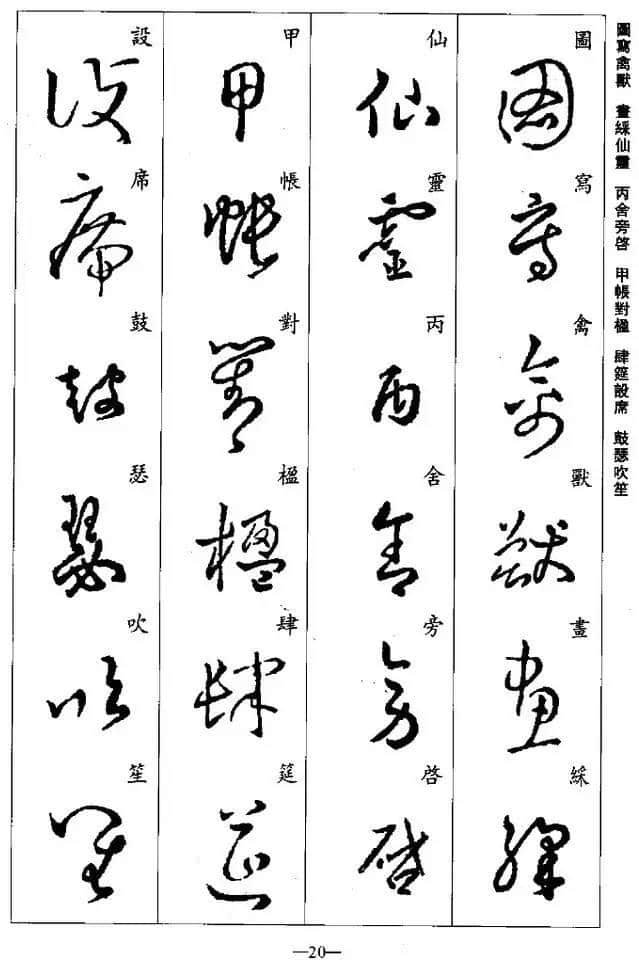 圖寫禽獸 畫綵仙靈 丙舍旁啓 甲帳對楹 肆筵設席 鼓瑟吹笙
圖寫禽獸畫綵
仙靈丙舍旁啓
甲帳對楹肆筵
設席鼓瑟吹笙
—20—